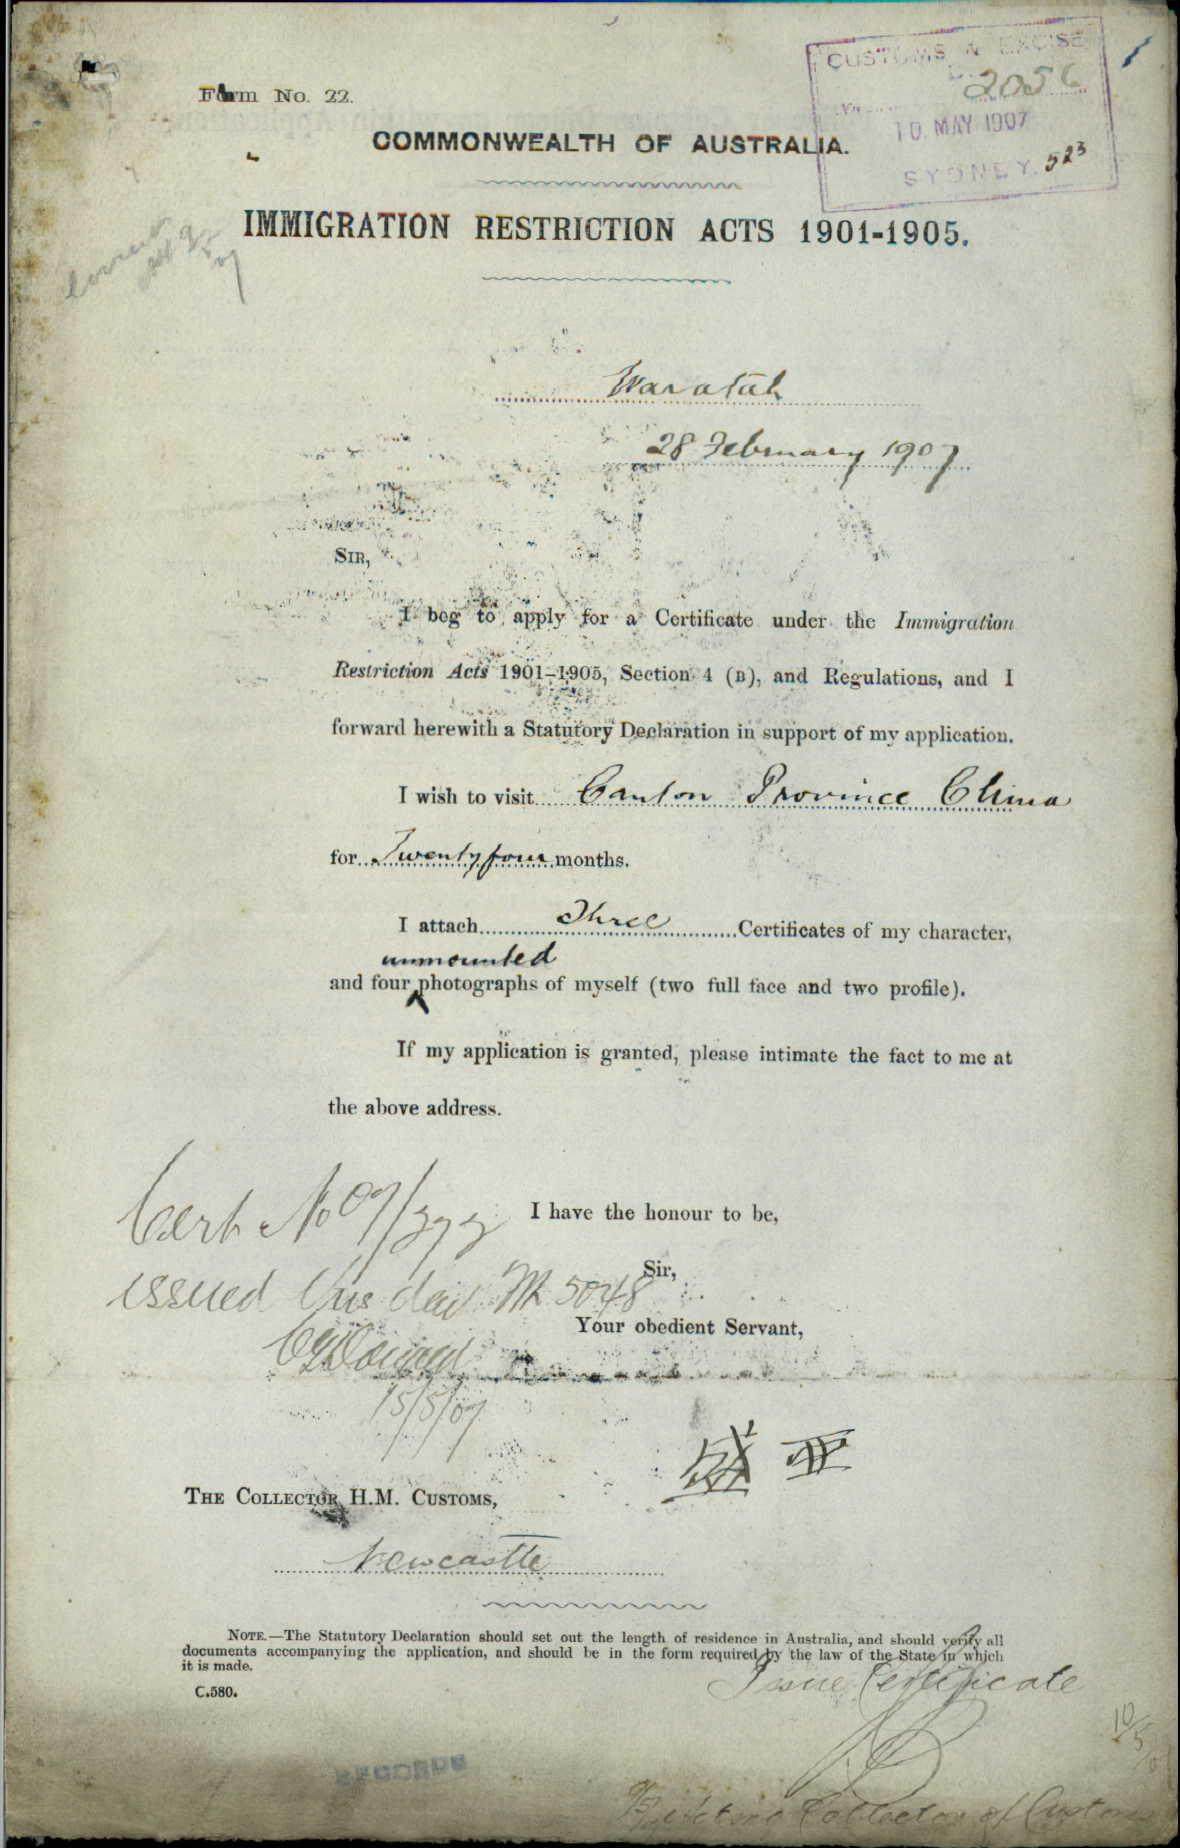 Form No. 22.
CUSTOMS & EXCISE
2056
10 MAY 1907
SYDNEY. 523
COMMONWEALTH OF AUSTRALIA.
IMMIGRATION RESTRICTION ACTS 1901-1905.
Waratah
28 February 1907
SIR,
I beg to apply for a Certificate under the Immigration
Restriction Acts 1901-1905, Section 4 (B), and Regulations, and I
forward herewith a Statutory Declaration in support of my application.
I wish to visit Canton Province China
for Twentyfour months.
I attach Three Certificates of my character,
unmounted
and four photographs of myself (two full face and two profile).
If my application is granted, please intimate the fact to me at
the above address.
Cert No 07/
I have the honour to be,
issued this day
Sir,
Your obedient Servant,
15/5/07
THE COLLECTOR H.M. CUSTOMS,
Newcastle
NOTE.—The Statutory Declaration should set out the length of residence in Australia, and should verify all
documents accompanying the application, and should be in the form required by the law of the State in which
it is made.
C.580.
Issue Certificate
10/5/
RECORDS
Collector of Customs